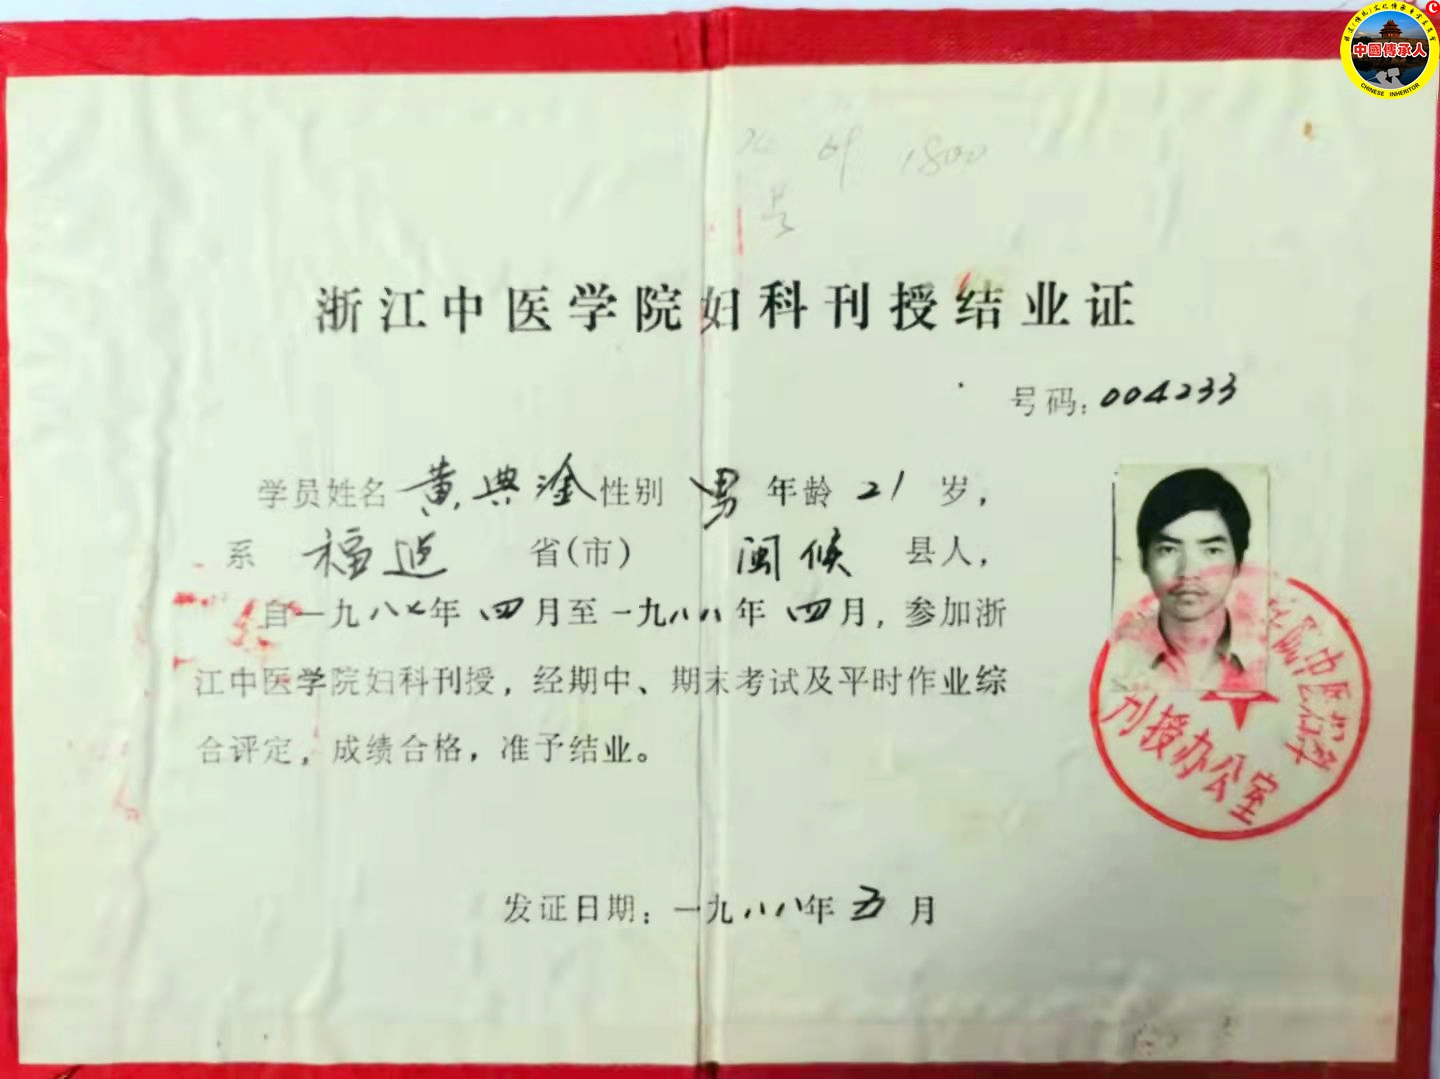 中國傳承人
CHINESE INHERITOR
1800
号
浙江中医学院妇科刊授结业证
号码：004233
学员姓名 黄典淦 性别 男 年龄 21 岁，
系 福建 省(市) 闽候 县人，
自一九八七年四月至一九八八年四月，参加浙
江中医学院妇科刊授，经期中、期末考试及平时作业综
合评定，成绩合格，准予结业。
刊授办公室
发证日期：一九八八年五月